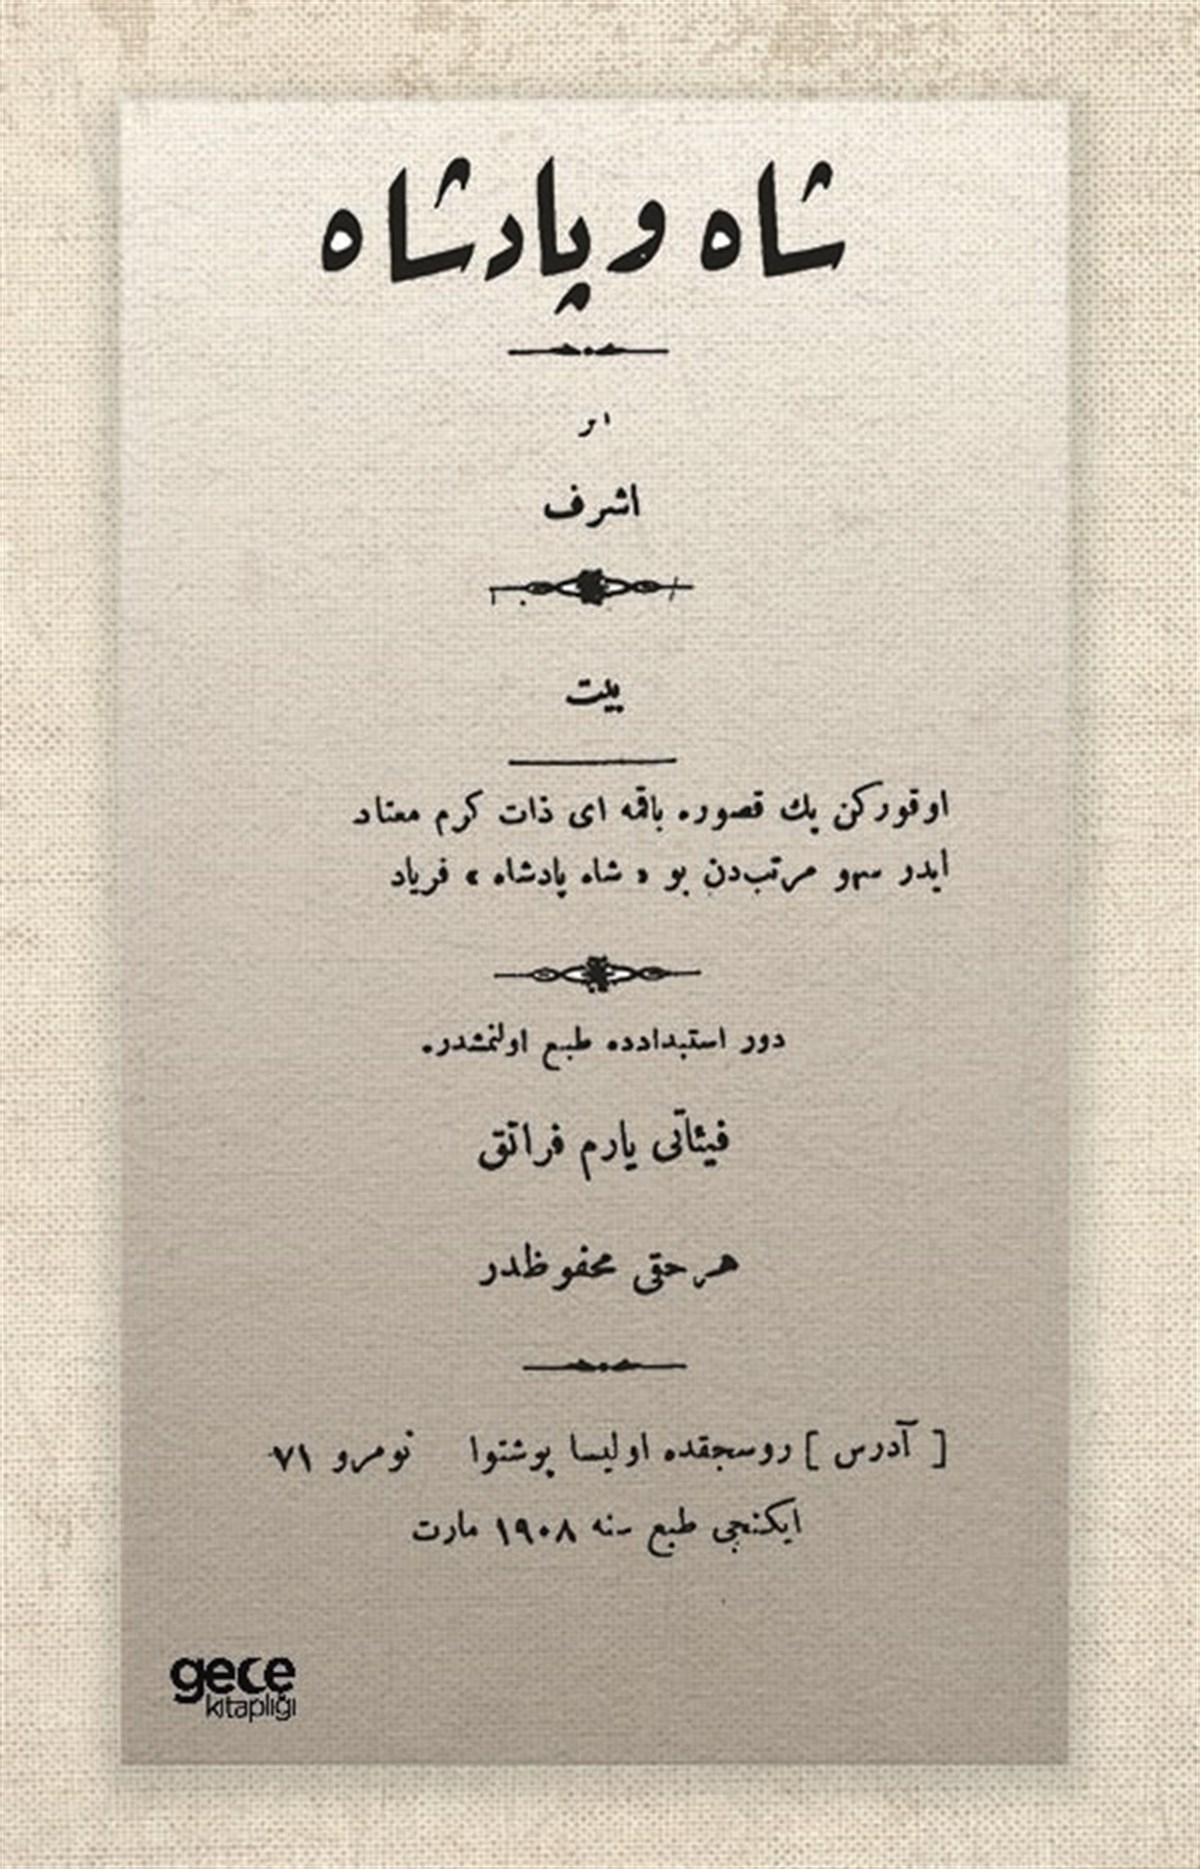 شاه و پادشاه
اثر
اشرف
بيت
اوقوركن پك قصوره باقمه اى ذات كرم معتاد
ايدر سهو مرتب‌دن بو « شاه پادشاه » فرياد
دور استبدادده طبع اولنمشدر.
فيئاتى يارم فرانق
هر حقى محفوظدر
[ آدرس ] روسجقده اوليسا پوشتوا نومرو ٧١
ايكنجى طبع سنه ١٩٠٨ مارت
gece
kitaplığı